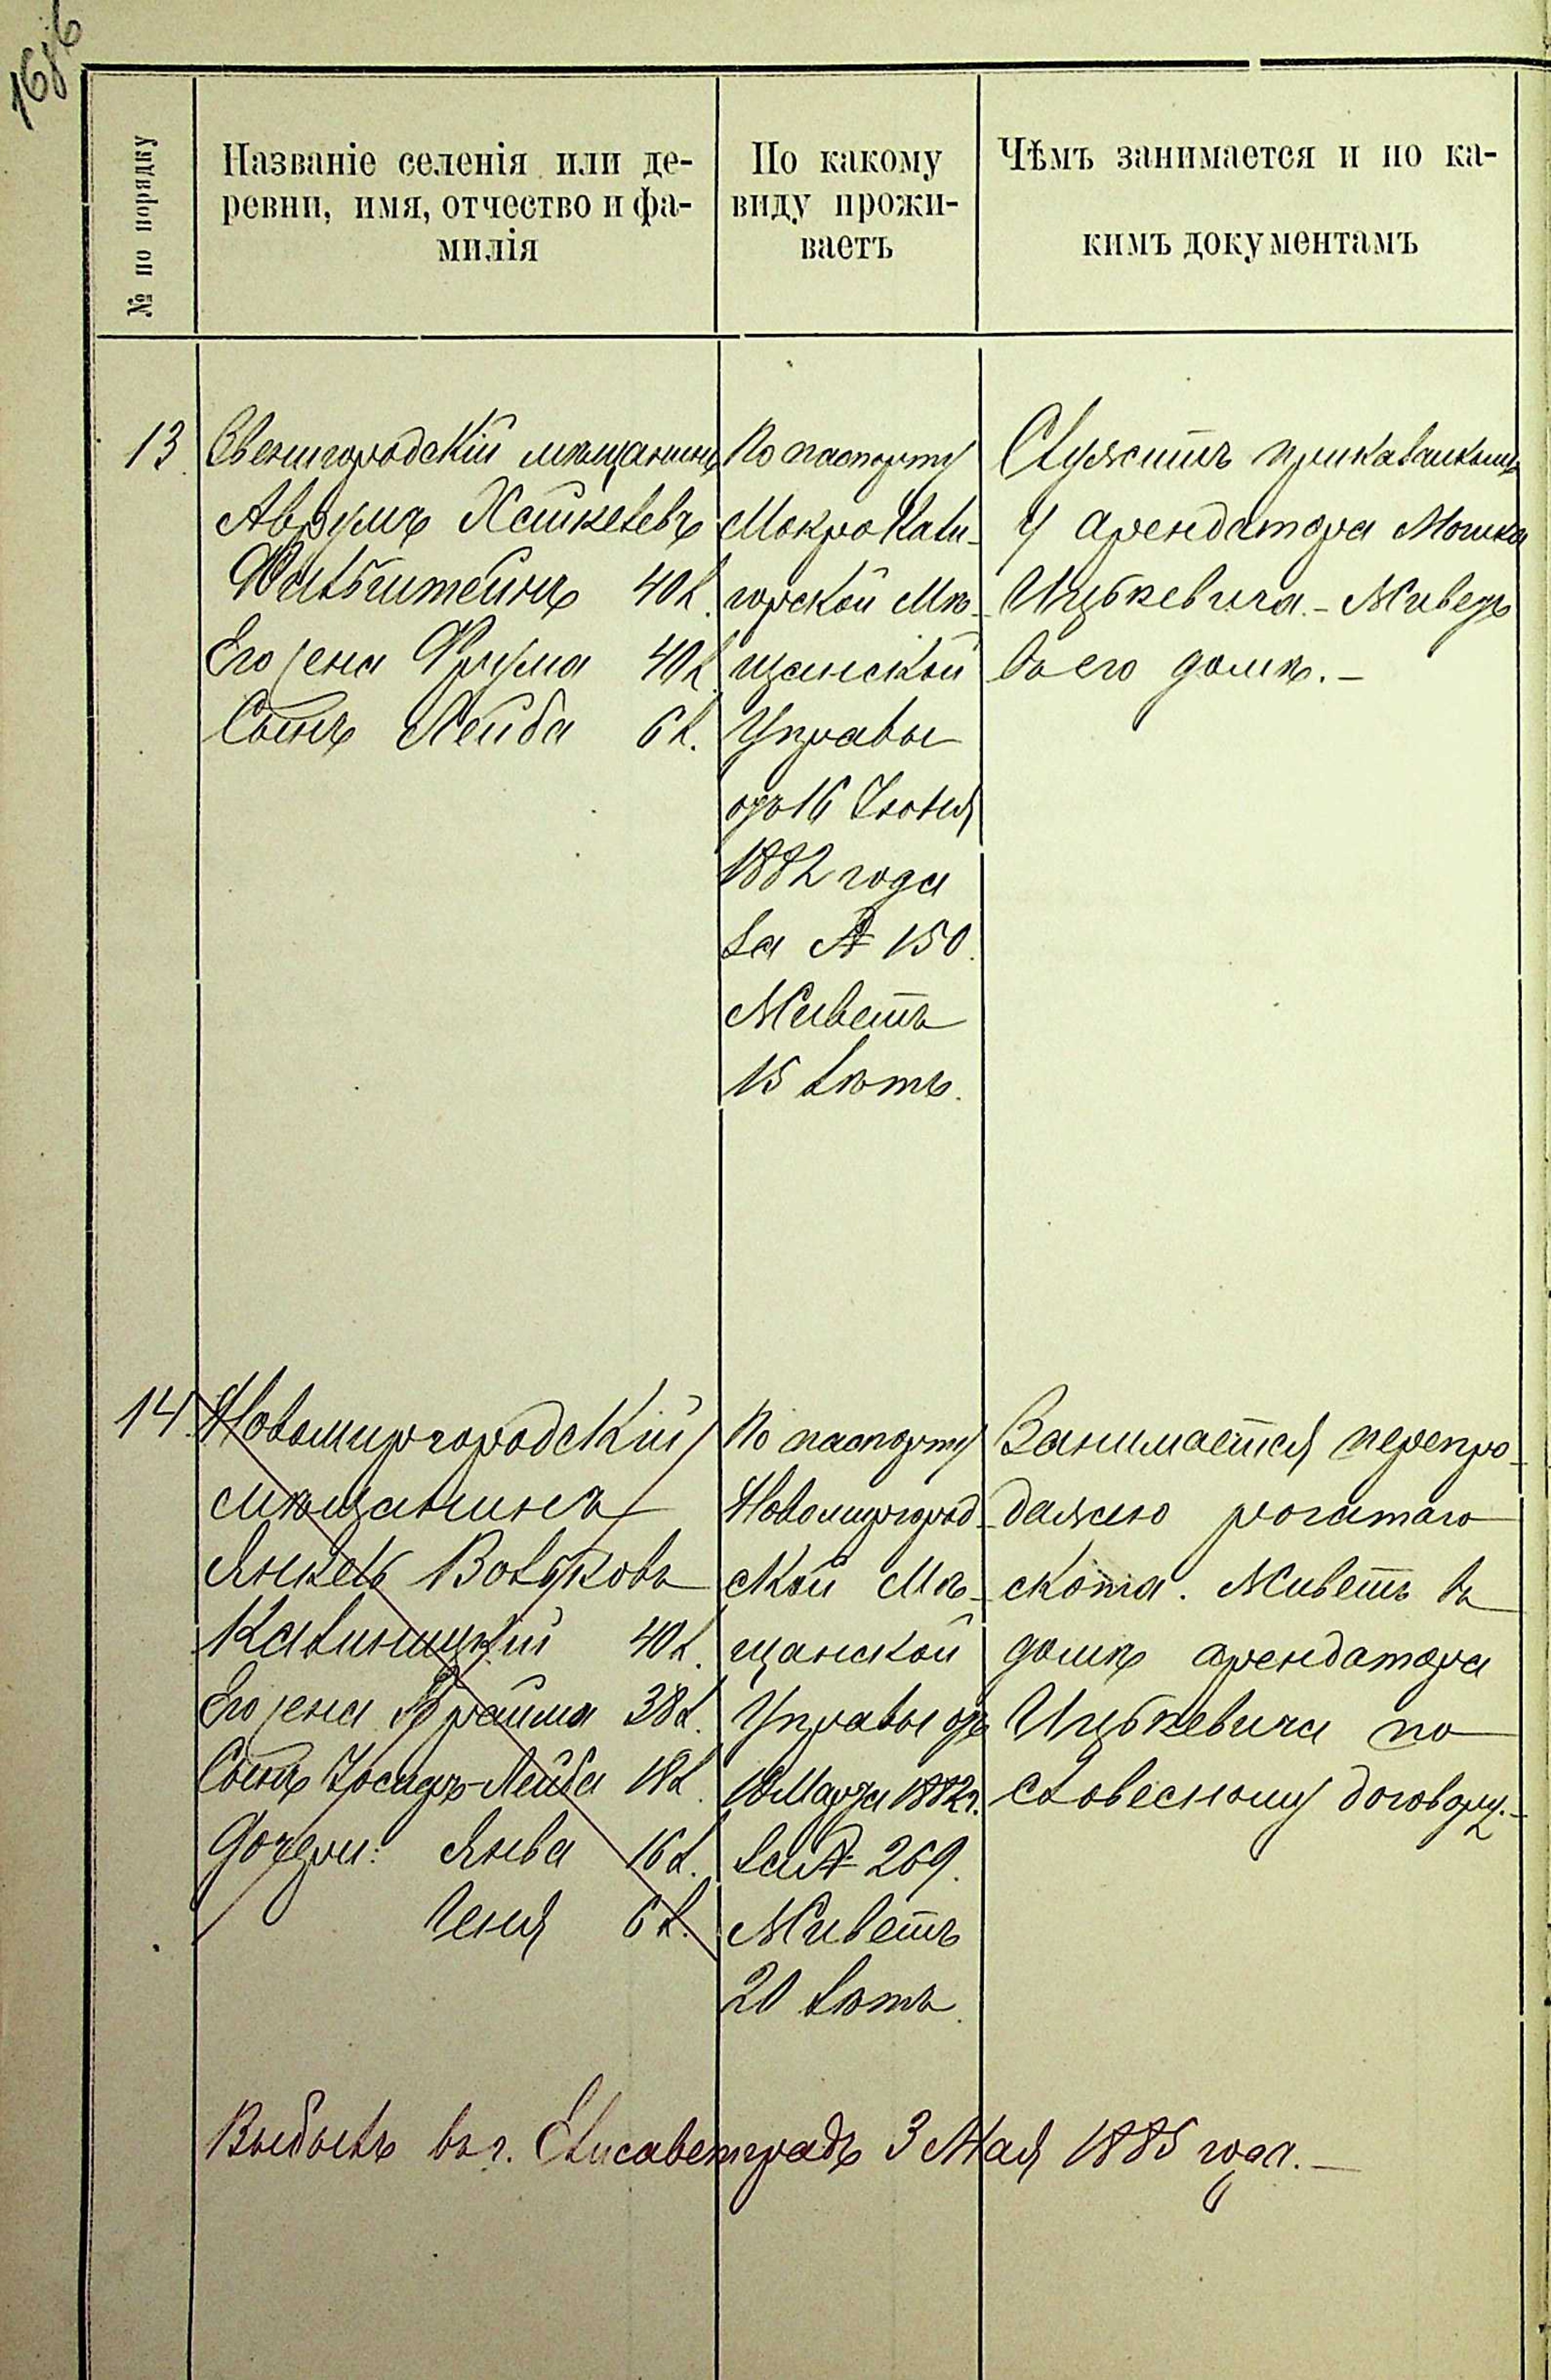 № по порядку
Названіе селенія или де-
ревни, имя, отчество и фа-
милія
По какому
виду прожи-
ваетъ
Чѣмъ занимается и по ка-
кимъ документамъ
13
Звенигородскій мѣщанинъ
Аврумъ Хаскелевъ
Фальбштейнъ 40 л.
Его жена Фрума 40 л.
Сынъ Лейба 6 л.
По паспорту
Мокро Кали-
горской Мѣ-
щанской
Управы
отъ 16 Іюня
1882 года
за № 150.
Живетъ
15 лѣтъ.
Служитъ приказчикомъ
у арендатора Мошка
Ицькевича. – Живетъ
въ его домѣ. –
14.
Новомиргородскій
мѣщанинъ
Янкель Вольковъ
Калиницкій 40 л.
Его жена Фрайма 38 л.
Сынъ Іосифъ-Лейба 18 л.
Дочери: Злева 16 л.
Геня 6 л.
По паспорту
Новомиргород-
ской Мѣ-
щанской
Управы отъ
18 Марта 1882 г.
за № 269.
Живетъ
20 лѣтъ.
Занимается перепро-
дажею рогатаго
скота. Живетъ въ
домѣ арендатора
Ицькевича по
словесному договору. –
Выбылъ въ г. Елисаветградъ 3 Мая 1885 года. –